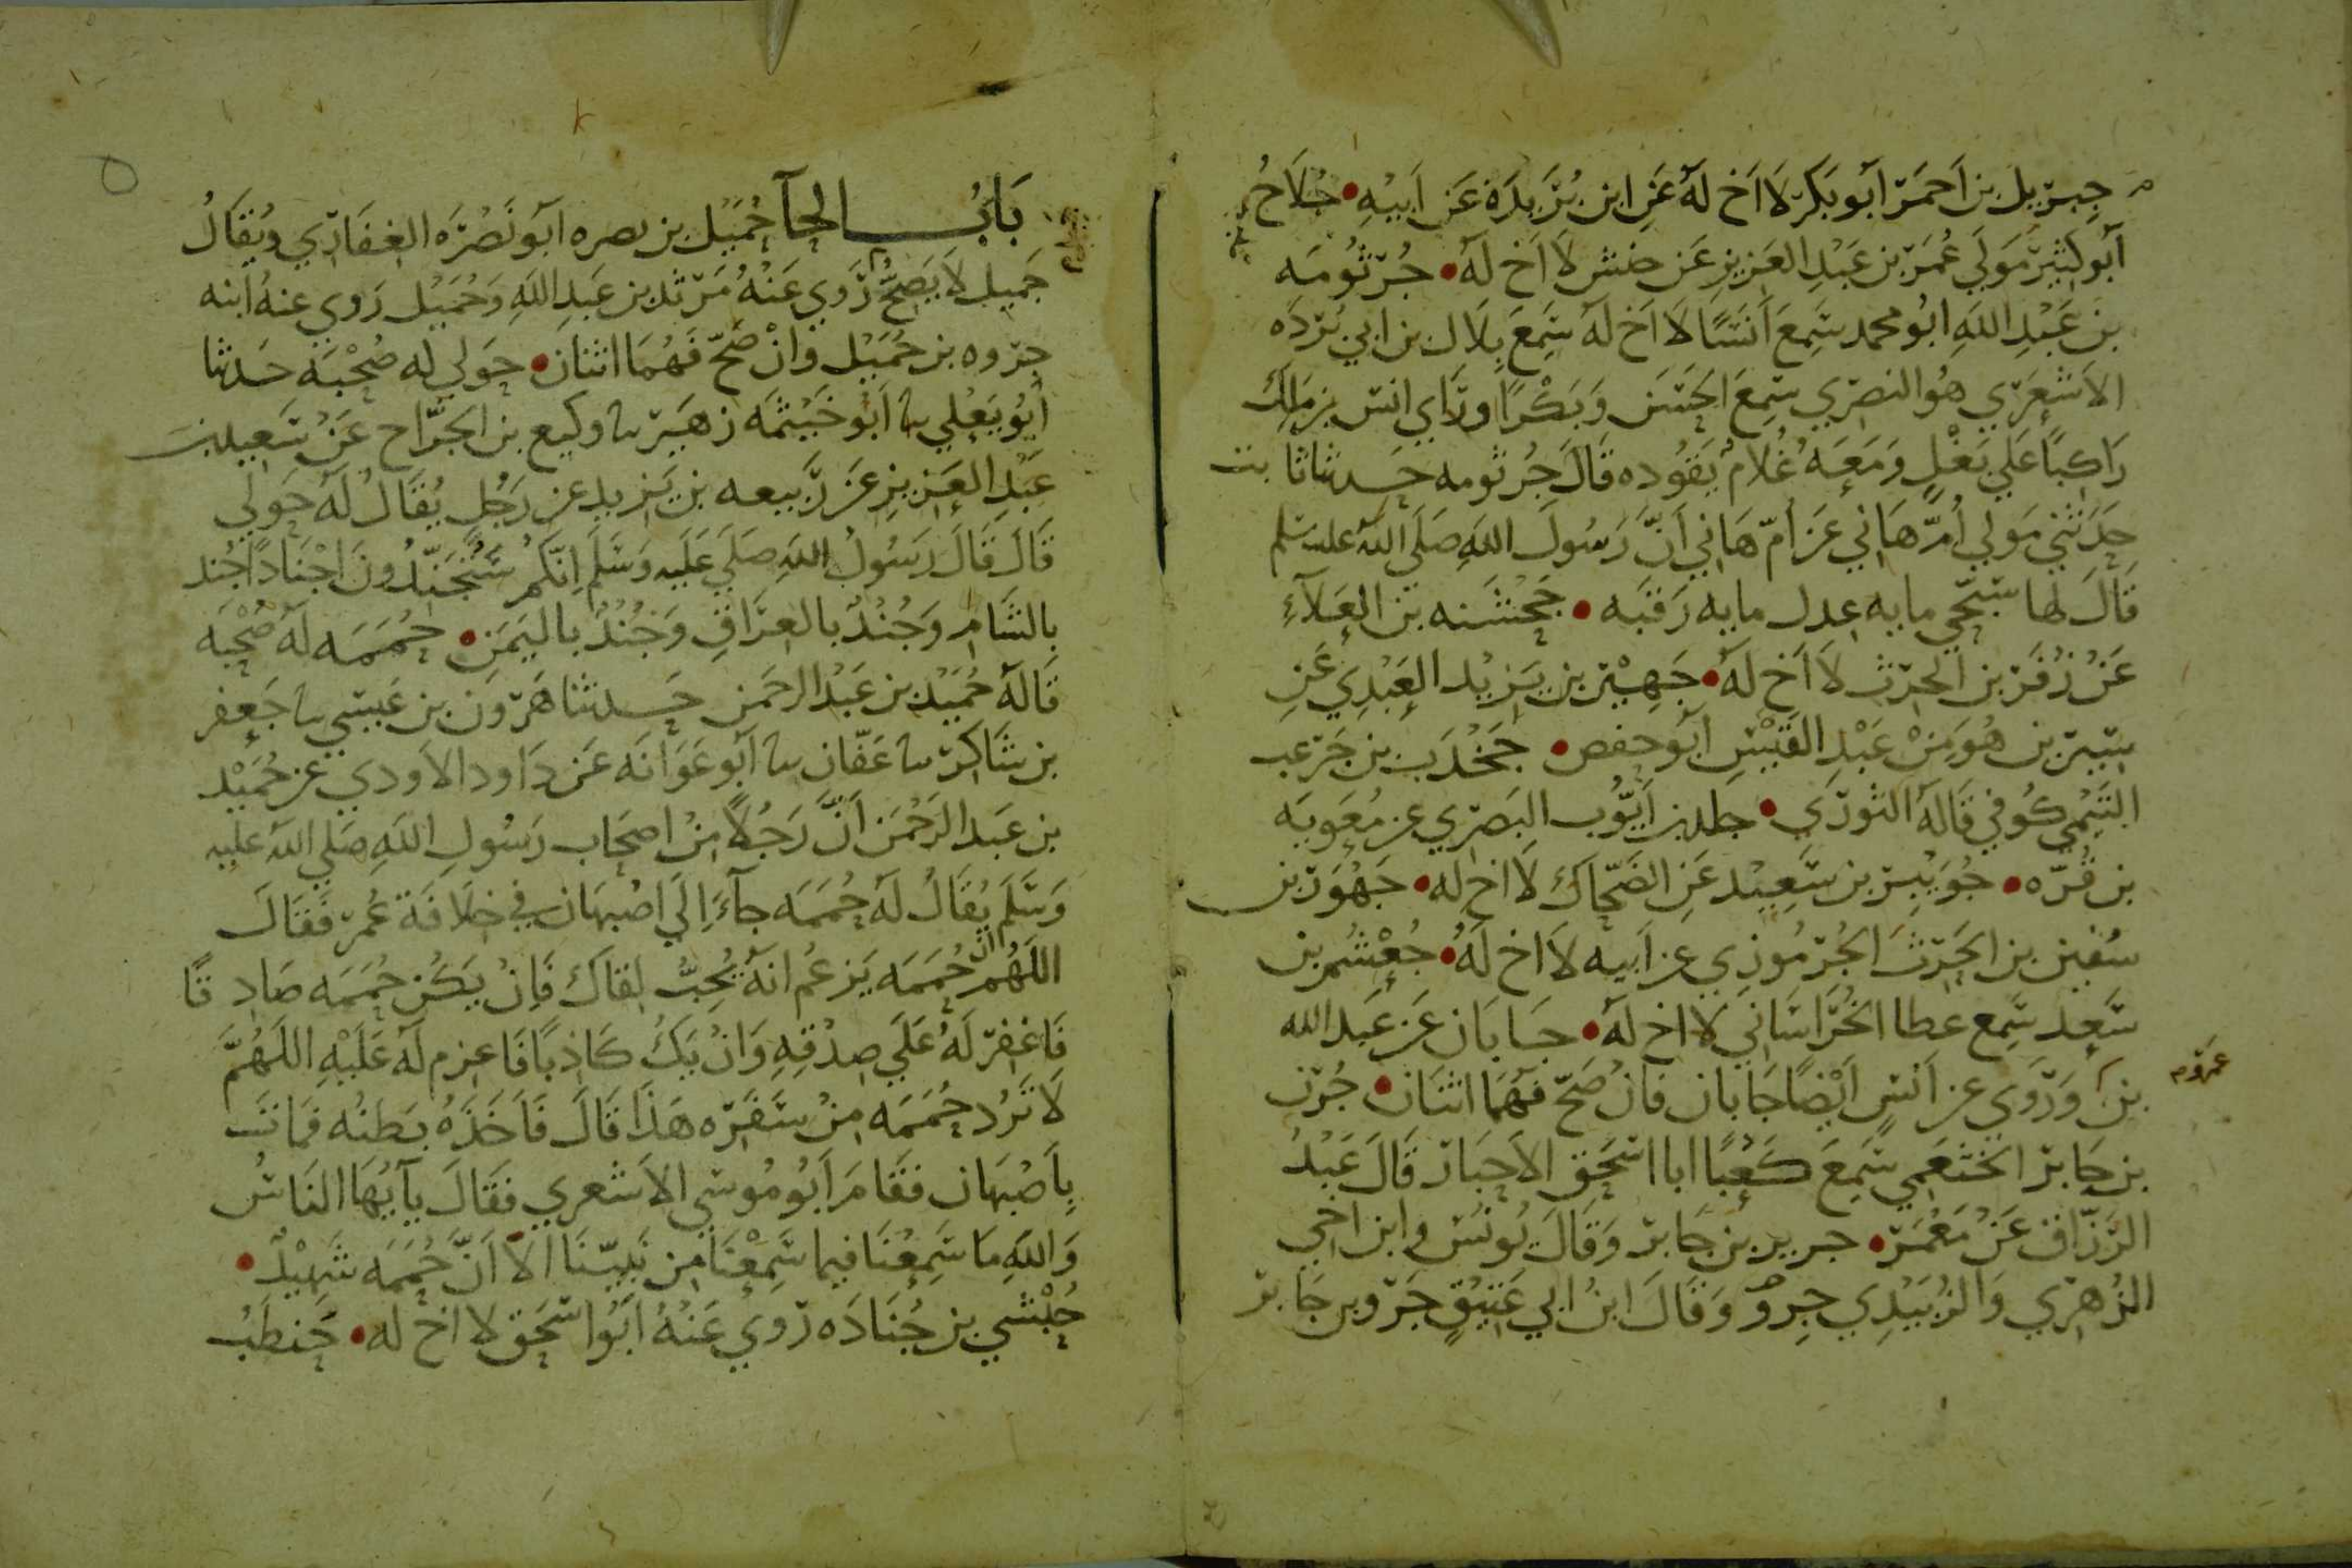 جبريل بن احمر ابو بكر لا اخ له عن ابن بريدة عن ابيه • جلاح
ابو كثير مولي عمر بن عبد العزيز عن حنش لا اخ له • جرثومه
بن عبد الله ابو محمد سمع انسا لا اخ له سمع بلال بن ابي برده
الاشعري هو النصري سمع الحسن وبكرا وراي انس بن مالك
راكبا علي بغل ومعه غلام يقوده قال جرثومه حدثنا ثابت
حدثني مولي ام هاني عن ام هاني ان رسول الله صلي الله عليه وسلم
قال لها سبحي مايه عدل مايه رقبه • جحشنه بن العلاء
عن زفر بن الحرث لا اخ له • جهير بن يزيد العبدي عن
سيرين هو من عبد القيس ابو حفص • جخدب بن جرعب
التيمي كوفي قاله الثوري • جلد بن ايوب البصري عن معويه
بن قره • جويبر بن سعيد عن الضحاك لا اخ له • جهور بن
سفين بن الحرث الجرموزي عن ابيه لا اخ له • جعشم بن
سعد سمع عطا الخراساني لا اخ له • جابان عن عبد الله
عمرو
بن وروي عن انس ايضا جابان فان صح فهما اثنان • جرن
بن جابر الخثعمي سمع كعبا ابا اسحق الاحبار قال عبد
الرزاق عن معمر • جرير بن جابر وقال يونس وابن اخي
الزهري والزبيدي جرو وقال ابن ابي عتيق جرو بن جابر
باب الحا حميل بن بصره ابو نضره الغفاري ويقال
جميل لا يصح روي عنه مرثد بن عبد الله وحميل روي عنه ابنه
جروه بن حميل وان صح فهما اثنان • حولي له صحبه حدثنا
ابو يعلي نا ابو خيثمه زهير نا وكيع بن الجراح عن سعيد بن
عبد العزيز عن ربيعه بن يزيد عن رجل يقال له حولي
قال قال رسول الله صلي عليه وسلم انكم ستجندون اجنادا جند
بالشام وجند بالعراق وجند باليمن • حممه له صحبه
قاله حميد بن عبد الرحمن حدثنا هرون بن عيسي نا جعفر
بن شاكر نا عفان نا ابو عوانه عن داود الاودي عن حميد
بن عبد الرحمن ان رجلا من اصحاب رسول الله صلي الله عليه
وسلم يقال له حممه جاء الي اصبهان في خلافة عمر فقال
اللهم ان حممه يزعم انه يحب لقاك فان يكن حممه صادقا
فاغفر له علي صدقه وان يك كاذبا فاعزم له عليه اللهم
لا ترد حممه من سفره هذا قال فاخذه بطنه فمات
باصبهان فقام ابو موسي الاشعري فقال يا ايها الناس
والله ما سمعنا فيما سمعنا من نبينا الا ان حممه شهيد •
حبشي بن جناده روي عنه ابو اسحق لا اخ له • حنطب